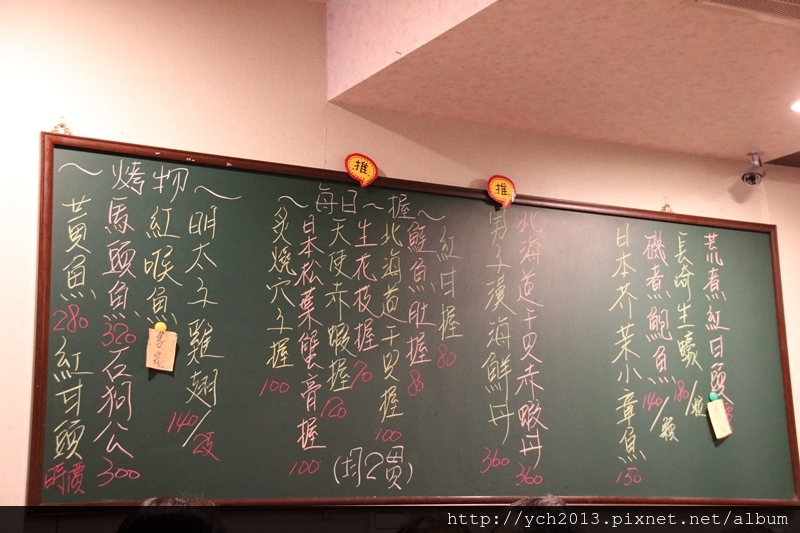 荒煮紅甘頭
長崎生蠔 180/粒
磯煮鮑魚 140/顆
日本芥茉小章魚 150
推
北海道干貝赤蝦丹 360
男子漢海鮮丹 360
推
~每日一握~
紅甘握 80
鮭魚肚握 80
北海道干貝握 100
生花枝握 70
天使赤蝦握 120
日本松葉蟹膏握 100
炙燒穴子握 100
(均2貫)
~烤物~
明太子雞翅 140/2支
紅喉魚
售完
馬頭魚 320
石狗公 300
黃魚 280
紅甘頭 時價
http://ych2013.pixnet.net/album